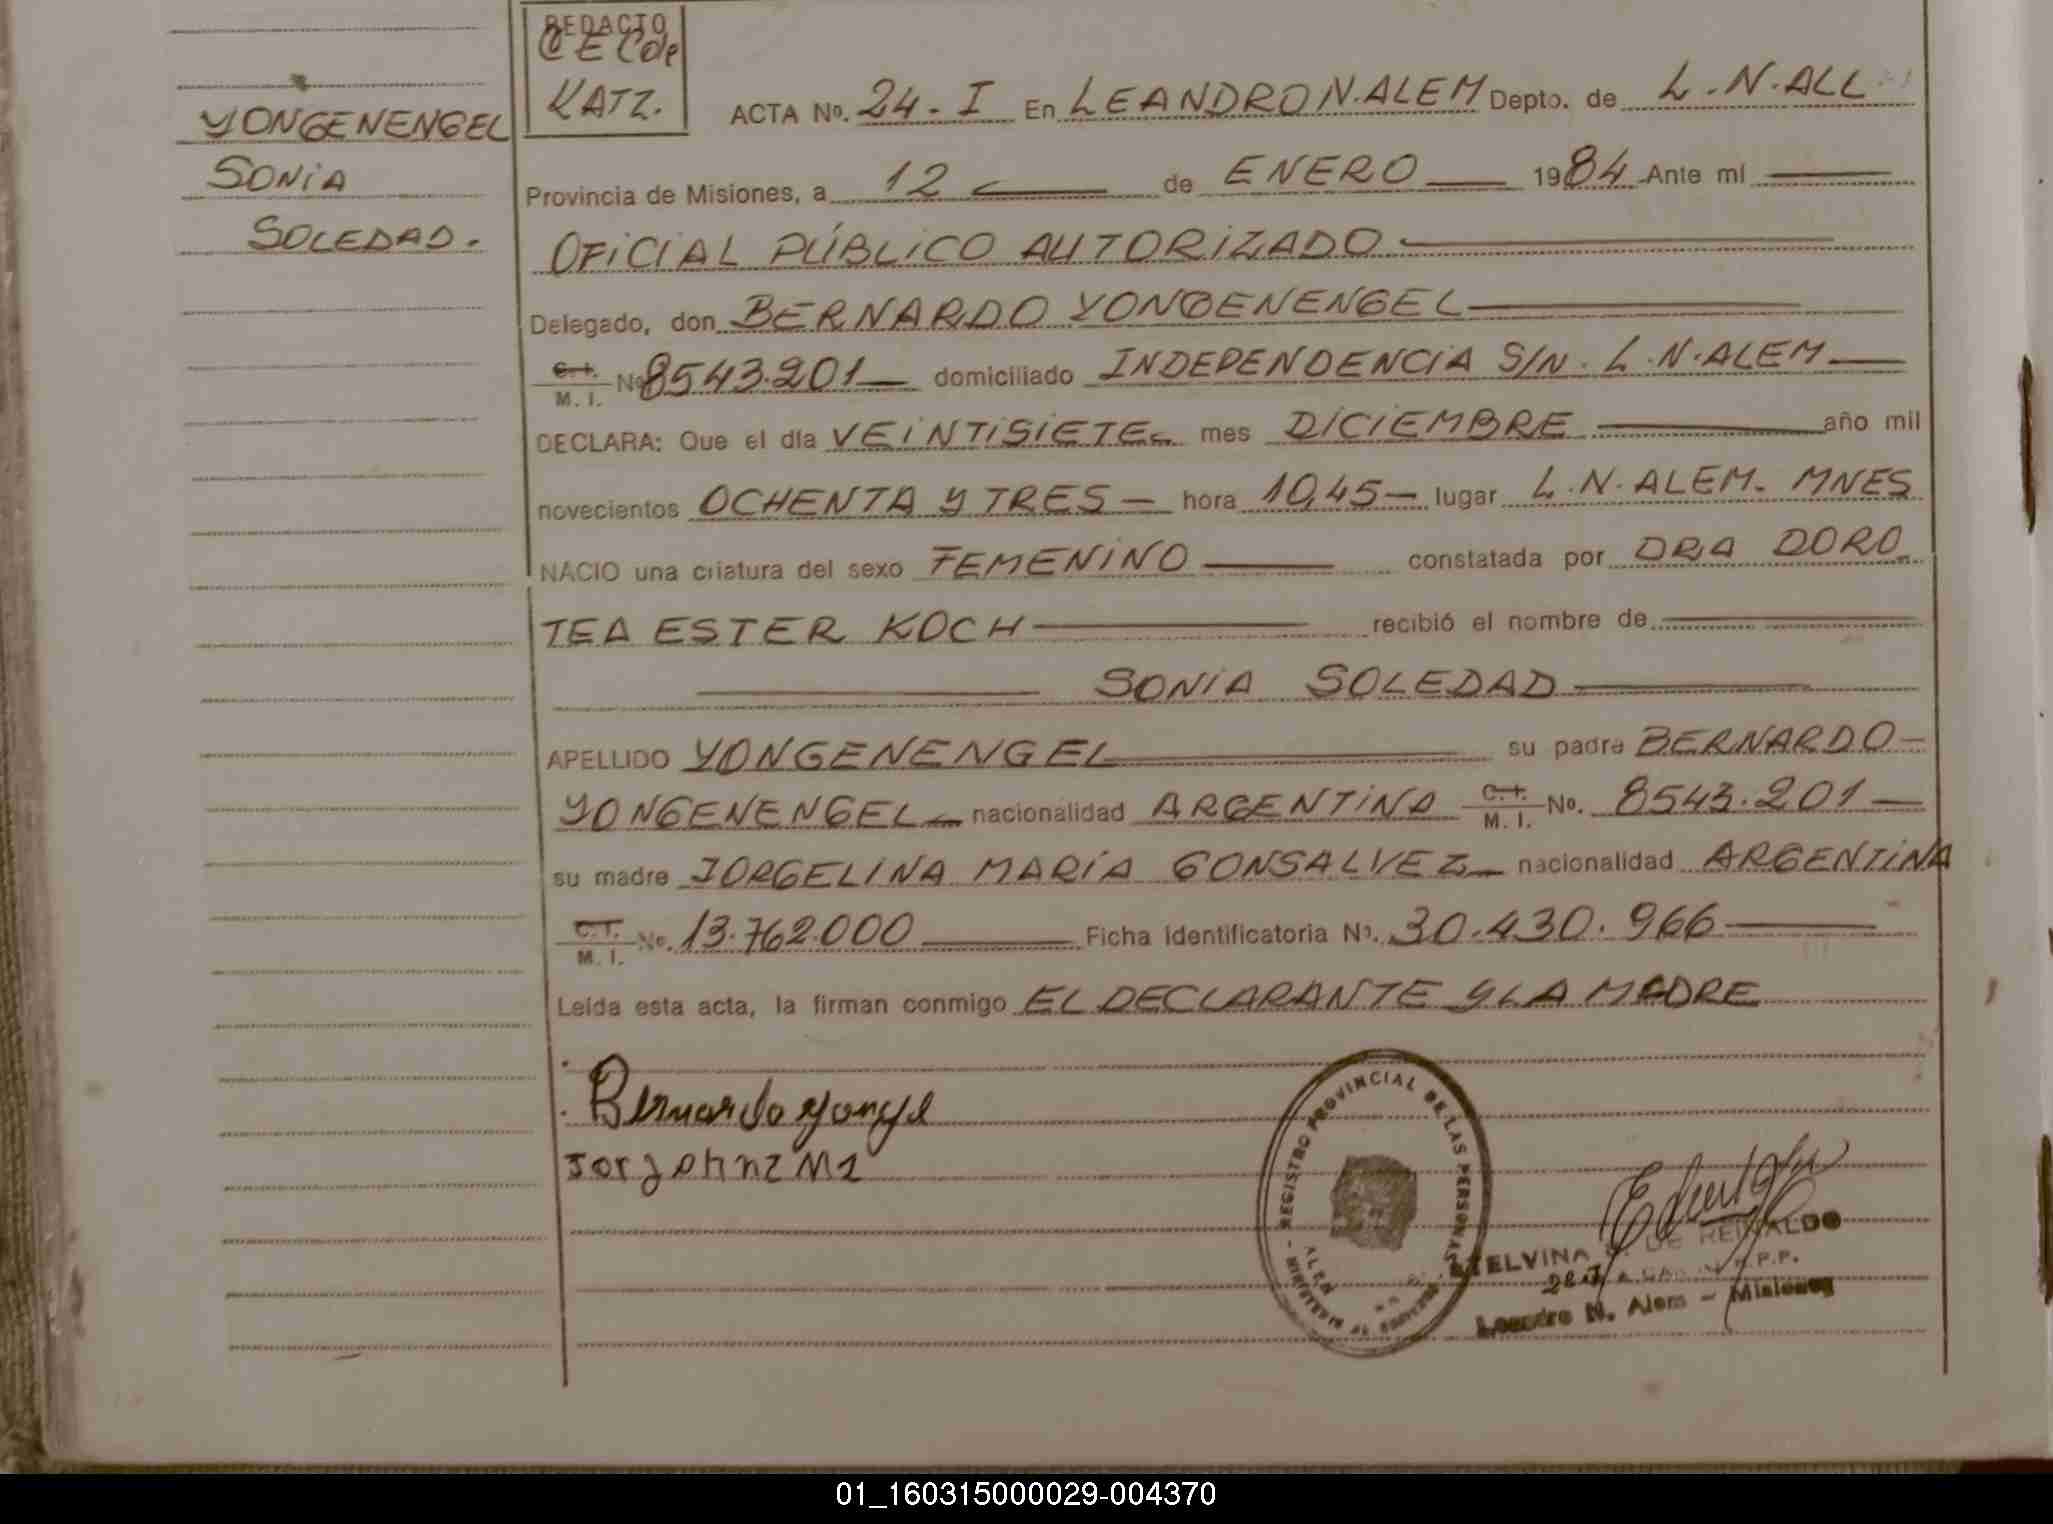 YONGENENGEL
SONIA
SOLEDAD.
REDACTO
C E C de
KATZ.
ACTA No. 24 - I En LEANDRO N. ALEM Depto. de L. N. ALL
Provincia de Misiones, a 12 de ENERO 1984 Ante mi
OFICIAL PÚBLICO AUTORIZADO
Delegado, don BERNARDO YONGENENGEL
C. I. M. I. No 8543.201 domiciliado INDEPENDENCIA S/N. L. N. ALEM
DECLARA: Que el día VEINTISIETE mes DICIEMBRE año mil
novecientos OCHENTA Y TRES hora 10,45 lugar L. N. ALEM. MNES
NACIO una criatura del sexo FEMENINO constatada por DRA DORO
TEA ESTER KOCH recibió el nombre de
SONIA SOLEDAD
APELLIDO YONGENENGEL su padre BERNARDO
YONGENENGEL nacionalidad ARGENTINA C. I. M. I. No. 8543.201
su madre JORGELINA MARÍA GONSALVEZ nacionalidad ARGENTINA
C. I. M. I. No. 13.762.000 Ficha Identificatoria No. 30.430.966
Leída esta acta, la firman conmigo EL DECLARANTE Y LA MADRE
Bernardo
REGISTRO PROVINCIAL DE LAS PERSONAS
ALEM
ETELVINA DE REINALDO
Leandro N. Alem - Misiones
01_160315000029-004370